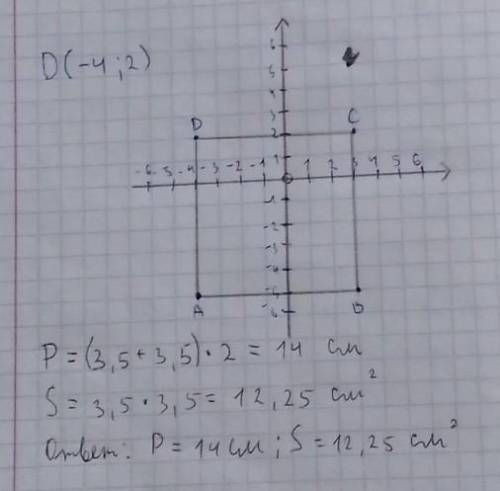 D(-4;2)
6
5
4
3
D
2
C
1
-6 -5 -4 -3 -2 -1 0 1 2 3 4 5 6
-1
-2
-3
-4
-5
-6
A
B
P = (3,5 + 3,5) · 2 = 14 см
S = 3,5 · 3,5 = 12,25 см²
Ответ: P = 14 см ; S = 12,25 см²